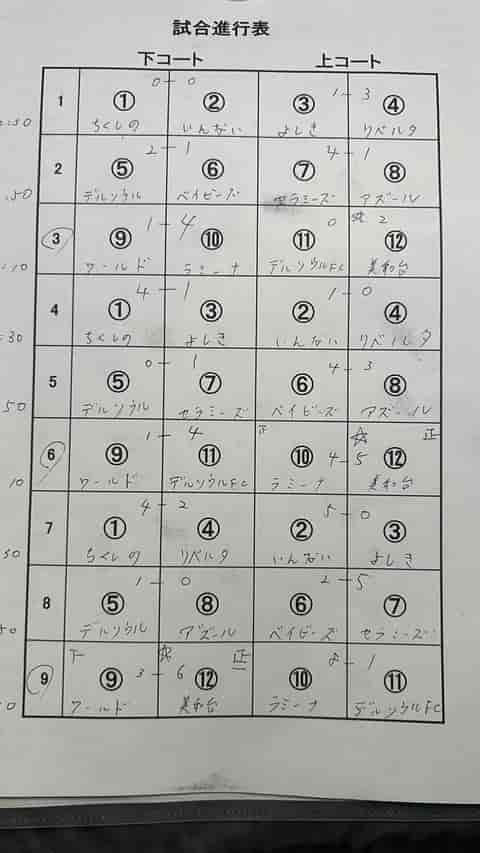 試合進行表
下コート 上コート
1 ① 0 - 0 ② ③ 1 - 3 ④
:50 ちくしの いんない よしき リベルタ
2 ⑤ 2 - 1 ⑥ ⑦ 4 - 1 ⑧
.50 デルソウル ベイビーズ セラミーズ アズール
3 ⑨ 1 - 4 ⑩ ⑪ 0 ☆ 2 ⑫
:10 ワールド ラミーナ デルソウルFC 美和台
4 ① 4 - 1 ③ ② 1 - 0 ④
:30 ちくしの よしき いんない リベルタ
5 ⑤ 0 - 1 ⑦ ⑥ 4 - 3 ⑧
50 デルソウル セラミーズ ベイビーズ アズール
6 ⑨ 1 - 4 ⑪ 正 ⑩ 4 - 5 ☆ ⑫ 正
10 ワールド デルソウルFC ラミーナ 美和台
7 ① 4 - 2 ④ ② 5 - 0 ③
30 ちくしの リベルタ いんない よしき
8 ⑤ 1 - 0 ⑧ ⑥ 2 - 5 ⑦
50 デルソウル アズール ベイビーズ セラミーズ
9 下 ⑨ 3 - 6 ☆ ⑫ 正 ⑩ - 1 ⑪
0 ワールド 美和台 ラミーナ デルソウルFC